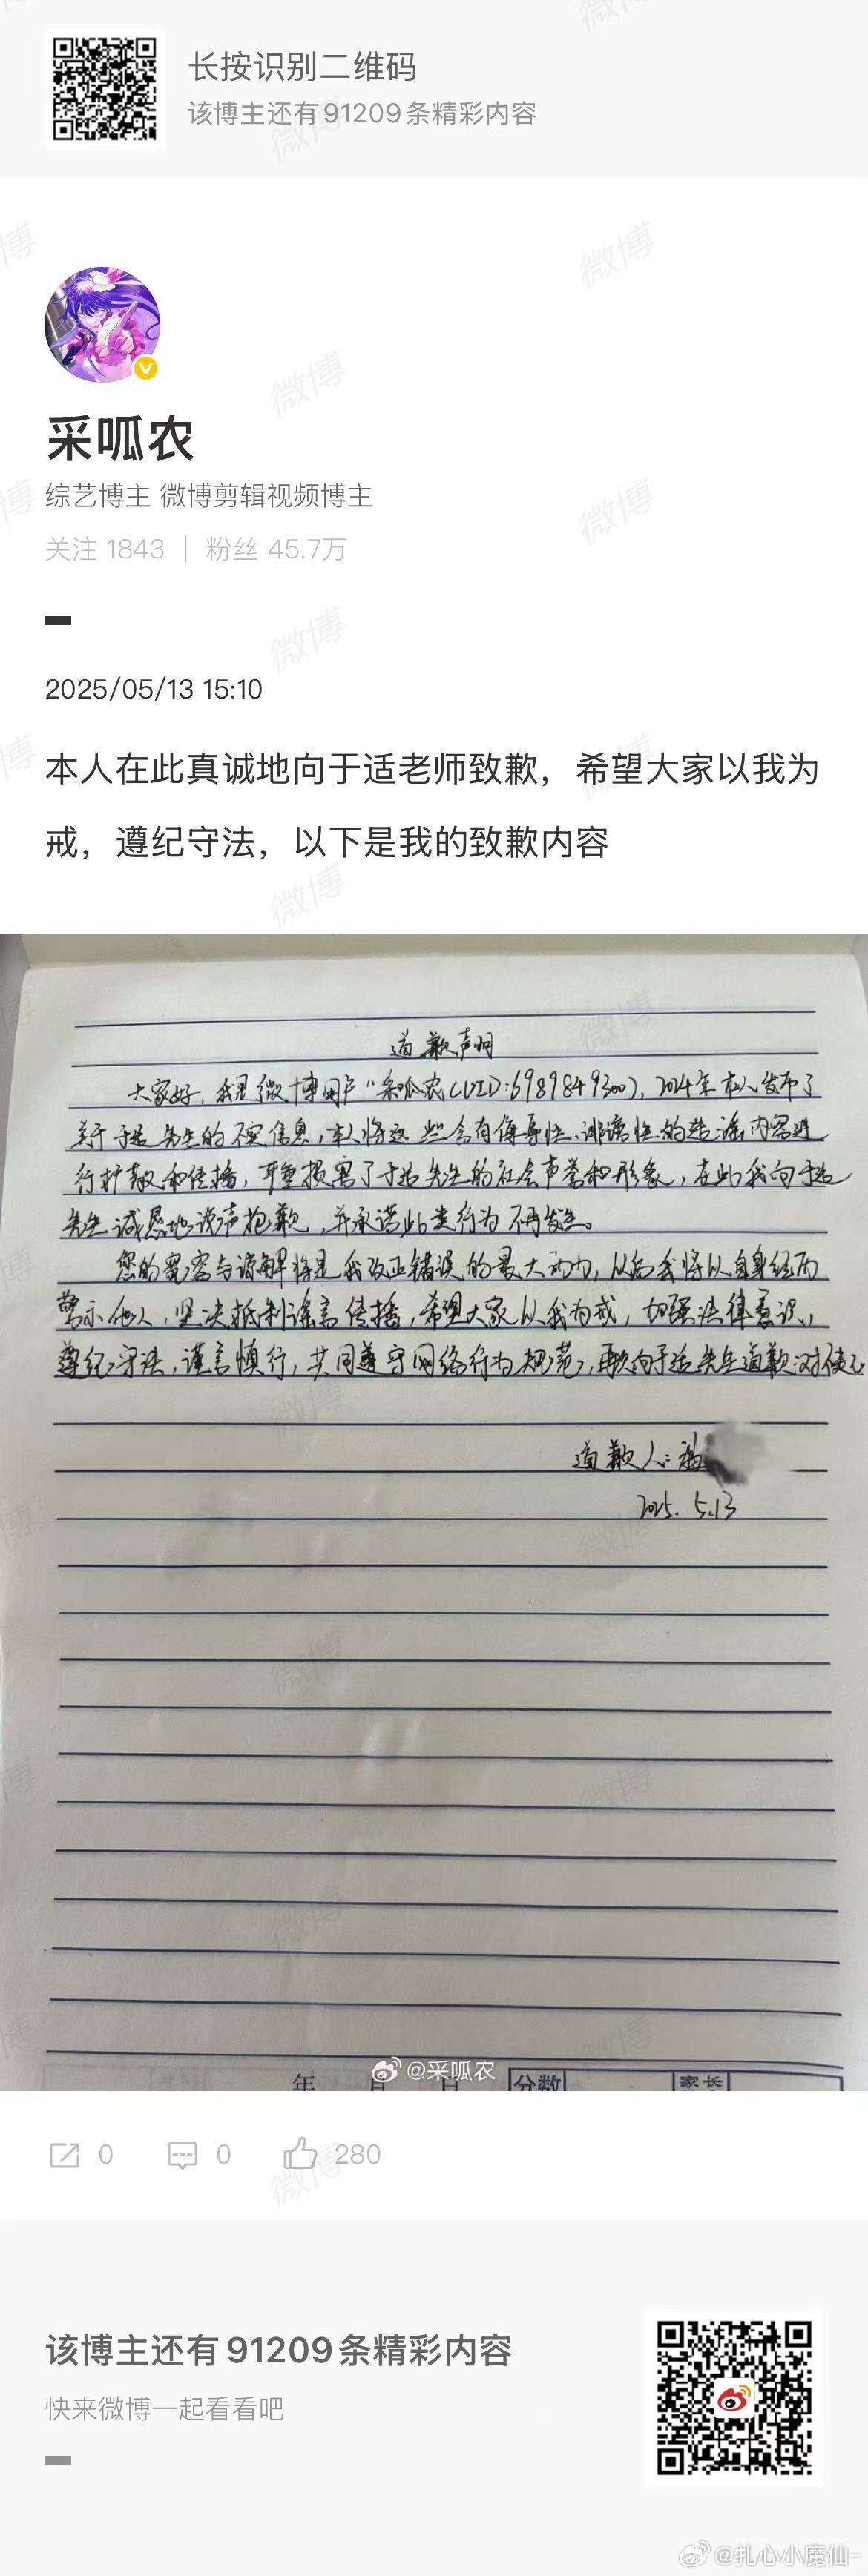 长按识别二维码
该博主还有91209条精彩内容
采呱农
综艺博主 微博剪辑视频博主
关注 1843 | 粉丝 45.7万
2025/05/13 15:10
本人在此真诚地向于适老师致歉，希望大家以我为
戒，遵纪守法，以下是我的致歉内容
道歉声明
大家好，我是微博用户“采呱农(UID:6989849300)，2024年本人发布了
关于于适先生的不实信息，本人将这些含有侮辱性、诽谤性的造谣内容进
行扩散和传播，严重损害了于适先生的社会声誉和形象，在此我向于适
先生诚恳地说声抱歉，并承诺此类行为不再发生。
您的宽容与谅解将是我改正错误的最大动力，以后我将以自身经历
警示他人，坚决抵制谣言传播，希望大家以我为戒，加强法律意识，
遵纪守法，谨言慎行，共同遵守网络行为规范，再次向于适先生道歉，对不起
道歉人：
2025. 5.13
@采呱农
年 月 日 分数 家长
0 0 280
该博主还有91209条精彩内容
快来微博一起看看吧
@扎心小魔仙-